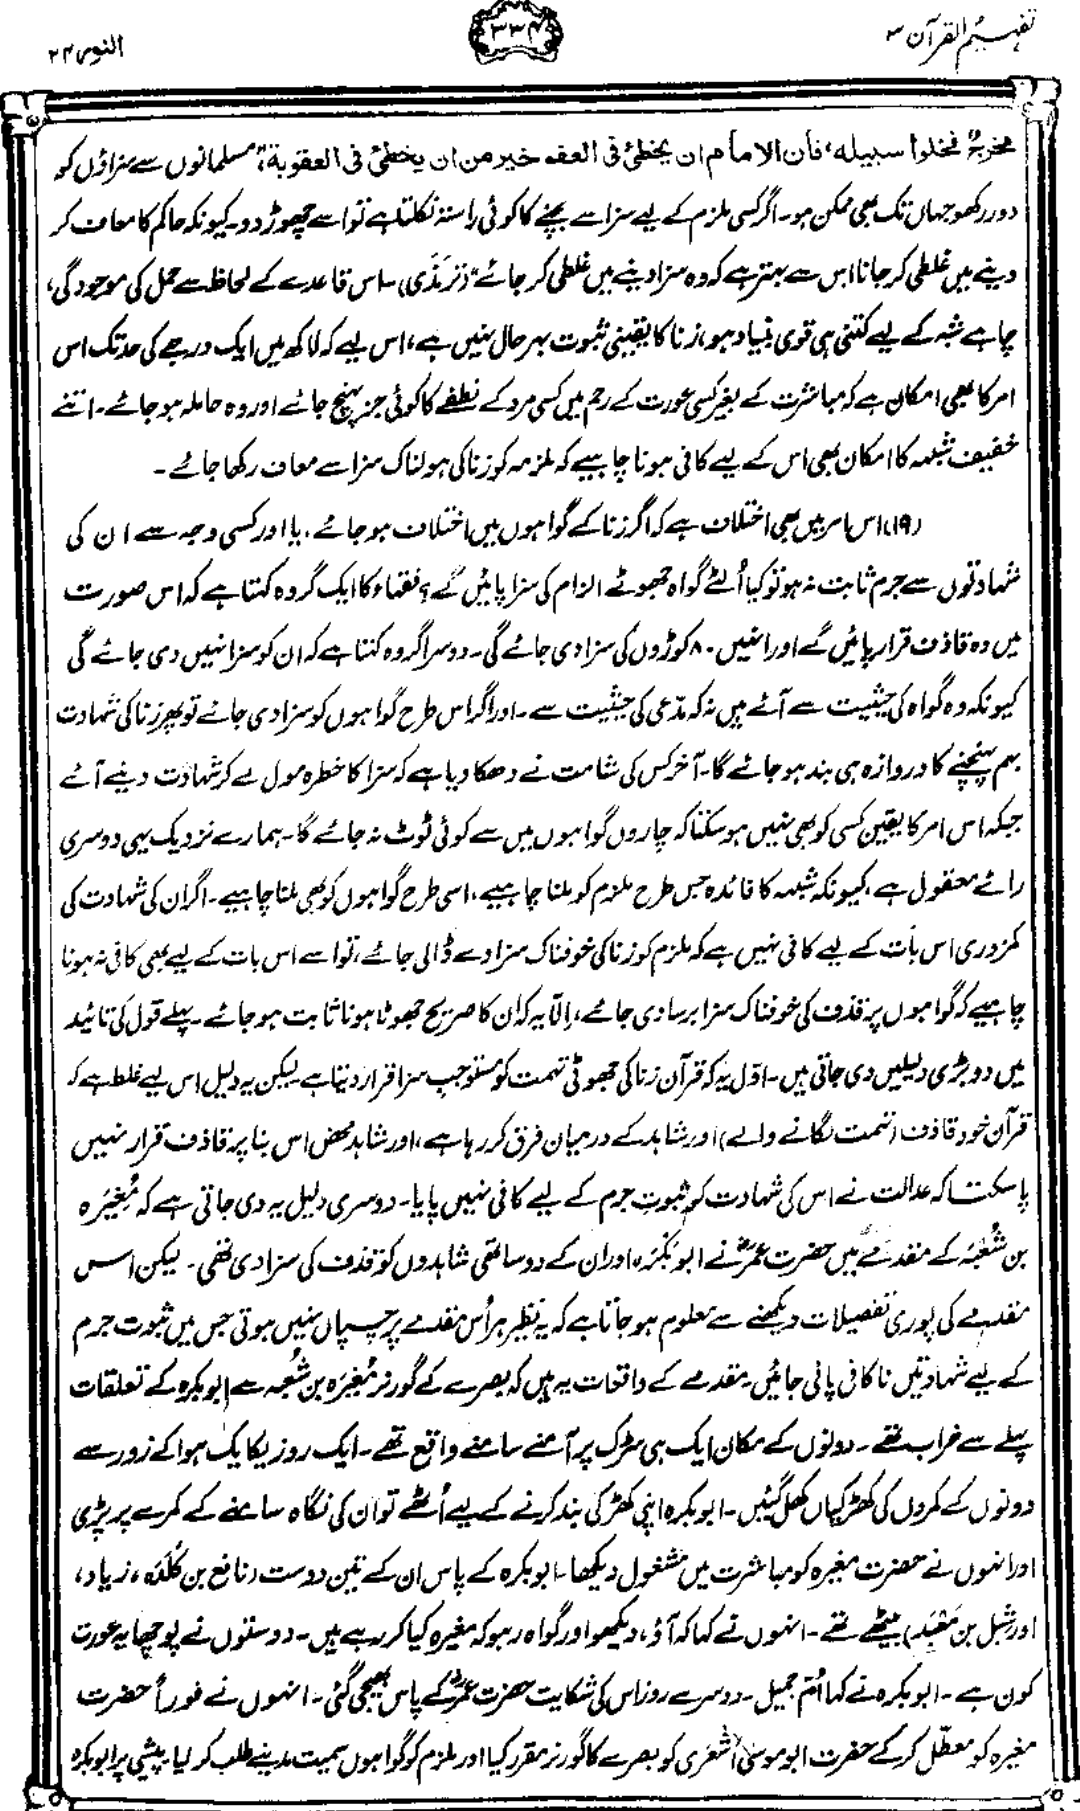 تفہیم القرآن ۳
۳۳۴
النور ۲۴
مخرج فخلوا سبیلہ، فان الامام ان یخطئ فی العفو خیر من ان یخطئ فی العقوبۃ، "مسلمانوں سے سزاؤں کو
دور رکھو جہاں تک بھی ممکن ہو۔ اگر کسی ملزم کے لیے سزا سے بچنے کا کوئی راستہ نکلتا ہے تو اسے چھوڑ دو۔ کیونکہ حاکم کا معاف کر
دینے میں غلطی کر جانا اس سے بہتر ہے کہ وہ سزا دینے میں غلطی کر جائے" (ترمذی)۔ اس قاعدے کے لحاظ سے حمل کی موجودگی،
چاہے شبہ کے لیے کتنی ہی قوی بنیاد ہو، زنا کا یقینی ثبوت بہرحال نہیں ہے، اس لیے کہ لاکھ میں ایک درجے کی حد تک اس
امر کا بھی امکان ہے کہ مباشرت کے بغیر کسی عورت کے رحم میں کسی مرد کے نطفے کا کوئی جز پہنچ جائے اور وہ حاملہ ہو جائے۔ اتنے
خفیف شبہ کا امکان بھی اس کے لیے کافی ہونا چاہیے کہ ملزمہ کو زنا کی ہولناک سزا سے معاف رکھا جائے۔
(۱۹) اس امر میں بھی اختلاف ہے کہ اگر زنا کے گواہوں میں اختلاف ہو جائے، یا اور کسی وجہ سے ان کی
شہادتوں سے جرم ثابت نہ ہو تو کیا اُلٹے گواہ جھوٹے الزام کی سزا پائیں گے؟ فقہاء کا ایک گروہ کہتا ہے کہ اس صورت
میں وہ قاذف قرار پائیں گے اور انہیں ۸۰ کوڑوں کی سزا دی جائے گی۔ دوسرا گروہ کہتا ہے کہ ان کو سزا نہیں دی جائے گی
کیونکہ وہ گواہ کی حیثیت سے آئے ہیں نہ کہ مدّعی کی حیثیت سے۔ اور اگر اس طرح گواہوں کو سزا دی جائے تو پھر زنا کی شہادت
بہم پہنچنے کا دروازہ ہی بند ہو جائے گا۔ آخر کس کی شامت نے دھکا دیا ہے کہ سزا کا خطرہ مول لے کر شہادت دینے آئے
جبکہ اس امر کا یقین کسی کو بھی نہیں ہو سکتا کہ چاروں گواہوں میں سے کوئی ٹوٹ نہ جائے گا۔ ہمارے نزدیک یہی دوسری
رائے معقول ہے، کیونکہ شبہ کا فائدہ جس طرح ملزم کو ملنا چاہیے، اسی طرح گواہوں کو بھی ملنا چاہیے۔ اگر ان کی شہادت کی
کمزوری اس بات کے لیے کافی نہیں ہے کہ ملزم کو زنا کی خوفناک سزا دے ڈالی جائے، تو اسے اس بات کے لیے بھی کافی نہ ہونا
چاہیے کہ گواہوں پر قذف کی خوفناک سزا برسا دی جائے، اِلّا یہ کہ ان کا صریح جھوٹا ہونا ثابت ہو جائے۔ پہلے قول کی تائید
میں دو بڑی دلیلیں دی جاتی ہیں۔ اول یہ کہ قرآن زنا کی جھوٹی تہمت کو مستوجبِ سزا قرار دیتا ہے۔ لیکن یہ دلیل اس لیے غلط ہے کہ
قرآن خود قاذف (تہمت لگانے والے) اور شاہد کے درمیان فرق کر رہا ہے، اور شاہد محض اس بنا پر قاذف قرار نہیں
پا سکتا کہ عدالت نے اس کی شہادت کو ثبوتِ جرم کے لیے کافی نہیں پایا۔ دوسری دلیل یہ دی جاتی ہے کہ مُغِیَرہ
بن شُعْبَہ کے مقدمے میں حضرت عمرؓ نے ابوبکرہ اور ان کے دو ساتھی شاہدوں کو قذف کی سزا دی تھی۔ لیکن اس
مقدمے کی پوری تفصیلات دیکھنے سے معلوم ہو جاتا ہے کہ یہ نظیر ہر اُس مقدمے پر چسپاں نہیں ہوتی جس میں ثبوت جرم
کے لیے شہادتیں ناکافی پائی جائیں۔ مقدمے کے واقعات یہ ہیں کہ بصرے کے گورنر مُغیرَہ بن شُعبہ سے ابوبکرہ کے تعلقات
پہلے سے خراب تھے۔ دونوں کے مکان ایک ہی سڑک پر آمنے سامنے واقع تھے۔ ایک روز یکایک ہوا کے زور سے
دونوں کے کمروں کی کھڑکیاں کھل گئیں۔ ابوبکرہ اپنی کھڑکی بند کرنے کے لیے اُٹھے تو ان کی نگاہ سامنے کے کمرے پر پڑی
اور انہوں نے حضرت مغیرہ کو مباشرت میں مشغول دیکھا۔ ابوبکرہ کے پاس ان کے تین دوست (نافع بن کَلَدَہ، زیاد،
اور شبل بن مَعْبَد) بیٹھے تھے۔ انہوں نے کہا کہ آؤ، دیکھو اور گواہ رہو کہ مغیرہ کیا کر رہے ہیں۔ دوستوں نے پوچھا یہ عورت
کون ہے۔ ابوبکرہ نے کہا اُم جمیل۔ دوسرے روز اس کی شکایت حضرت عمرؓ کے پاس بھیجی گئی۔ انہوں نے فوراً حضرت
مغیرہ کو معطّل کر کے حضرت ابو موسیٰ اَشْعَری کو بصرے کا گورنر مقرر کیا اور ملزم کو گواہوں سمیت مدینے طلب کر لیا۔ پیشی پر ابوبکرہ